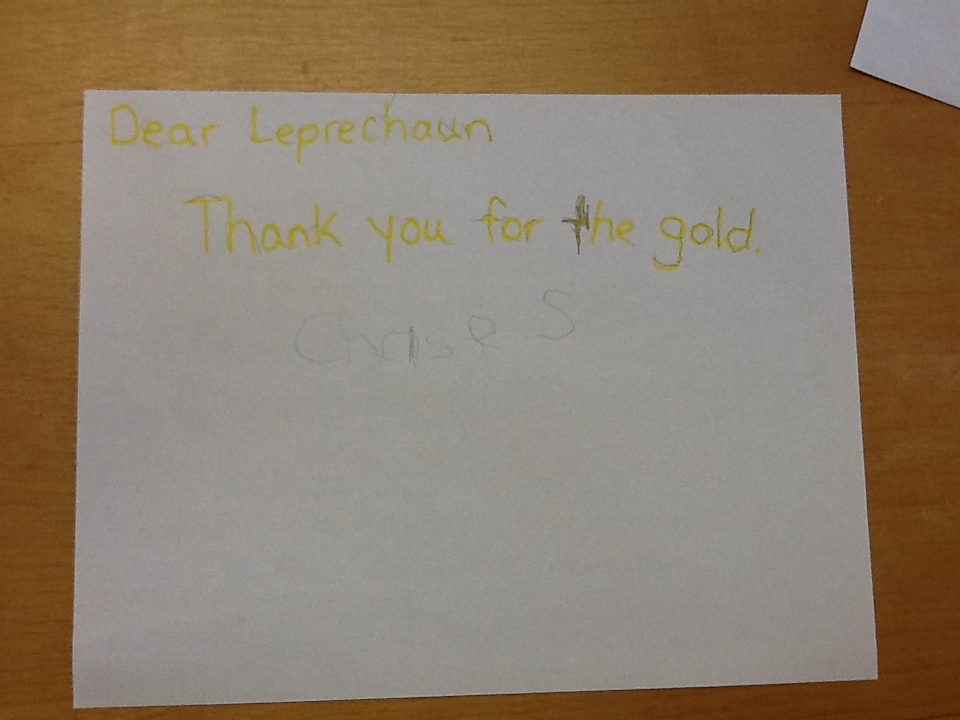 Dear Leprechaun
Thank you for the gold.
Chase S